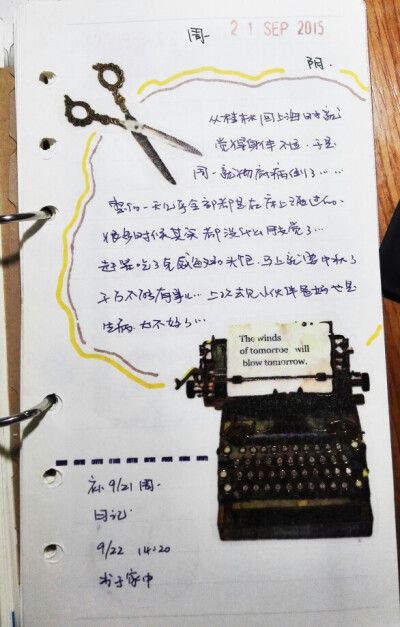 周一 21 SEP 2015
阴.
从桂林回上海时就
觉得身体不适. 于是
周一就彻底病倒了……
一天几乎全部都是在床上渡过的、
很多时候其实都没什么感觉了…
赶紧吃了 头孢. 马上就要中秋了
千万不能有事儿… 上次去见小伙伴 也是
生病. 太不好了…
The winds
of tomorroe will
blow tomorrow.
补 9/21 周一
日记
9/22 14:20
书于家中